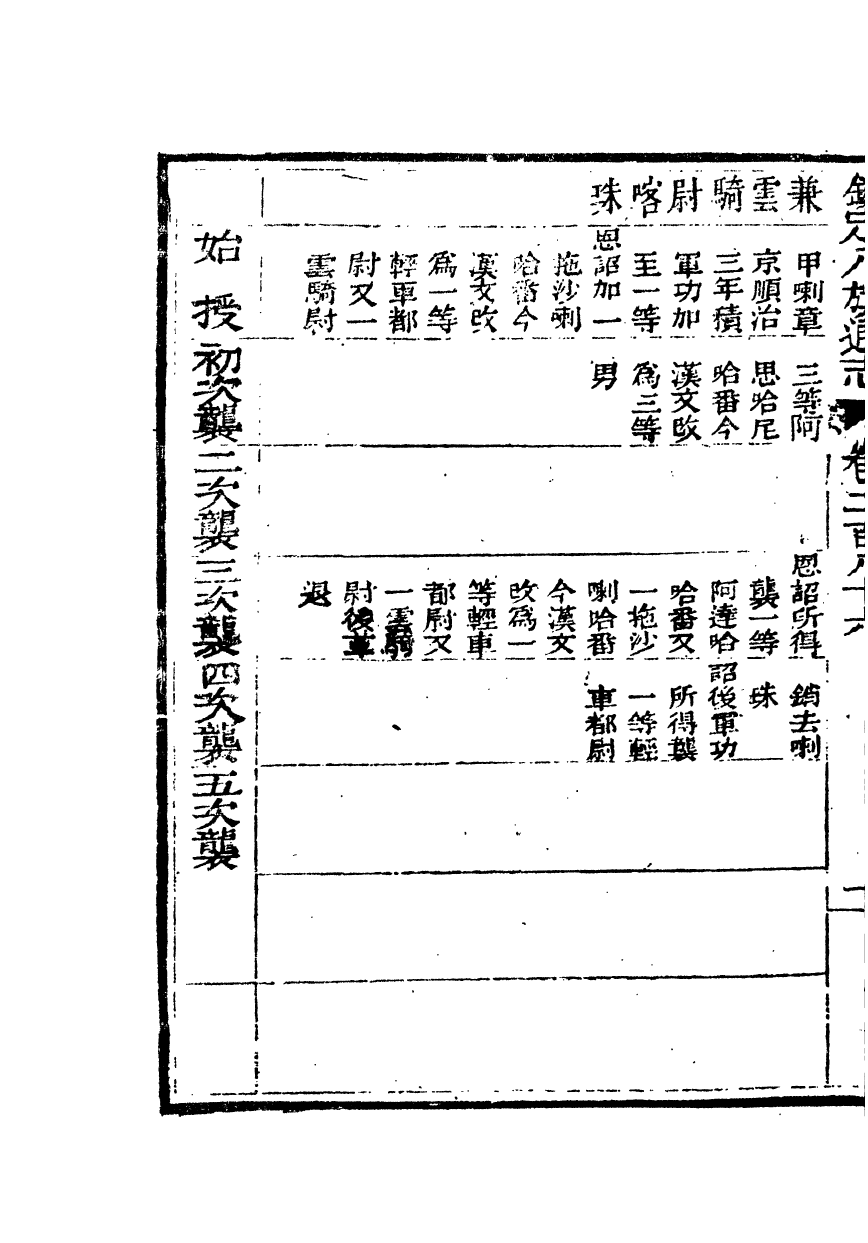 欽定八旗通志
卷二百八十六
二
兼
雲
騎
尉
喀
珠
甲喇章
京順治
三年積
軍功加
至一等
恩詔加一
拖沙喇
哈番今
漢文改
爲一等
輕車都
尉又一
雲騎尉
三等阿
思哈尼
哈番今
漢文改
爲三等
男
恩詔所得
襲一等
阿達哈
哈番又
一拖沙
喇哈番
今漢文
改爲一
等輕車
都尉又
一雲騎
尉後革
退
銷去喇
珠
詔後軍功
所得襲
一等輕
車都尉
始授
初次襲
二次襲
三次襲
四次襲
五次襲